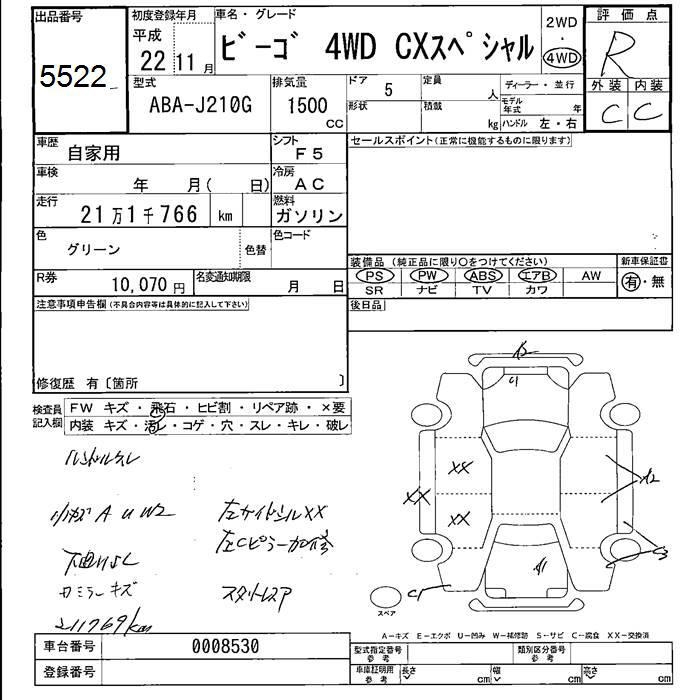 出品番号
5522
初度登録年月
平成
22 11月
車名・グレード
ビーゴ 4WD CXスペシャル
2WD
・
4WD
評価点
R
外装 内装
C C
型式
ABA-J210G
排気量
1500
CC
ドア 5
形状
定員 人
積載 kg
ディーラー・並行
モデル年式 年
ハンドル 左・右
車歴
自家用
シフト
F5
車検
年 月( 日)
冷房
AC
走行
21万1千766 km
燃料
ガソリン
色
グリーン
色替
色コード
R券
10,070円
名変通知期限
月 日
セールスポイント(正常に機能するものに限ります)
装備品 (純正品に限り〇をつけてください)
新車保証書
PS PW ABS エアB AW
SR ナビ TV カワ
有・無
後日品
注意事項申告欄(不具合内容等は具体的に記入して下さい)
修復歴 有〔箇所 〕
検査員
記入欄
FW キズ・飛石・ヒビ割・リペア跡・×要
内装 キズ・汚レ・コゲ・穴・スレ・キレ・破レ
ハンドルスレ
小キズ A U W2
左サイドシルXX
左Cピラー加修
下廻りサビ
ミラーキズ
スタットレスア
211769/km
A2
C1
XX
XX
XX
A2
C3
A1
C1
スペア
A-キズ E-エクボ U-凹み W-補修跡 S-サビ C-腐食 XX-交換済
車台番号
0008530
登録番号
型式指定番号
参考
類別区分番号
参考
車庫証明用
参考
長さ cm
幅 cm
高さ cm